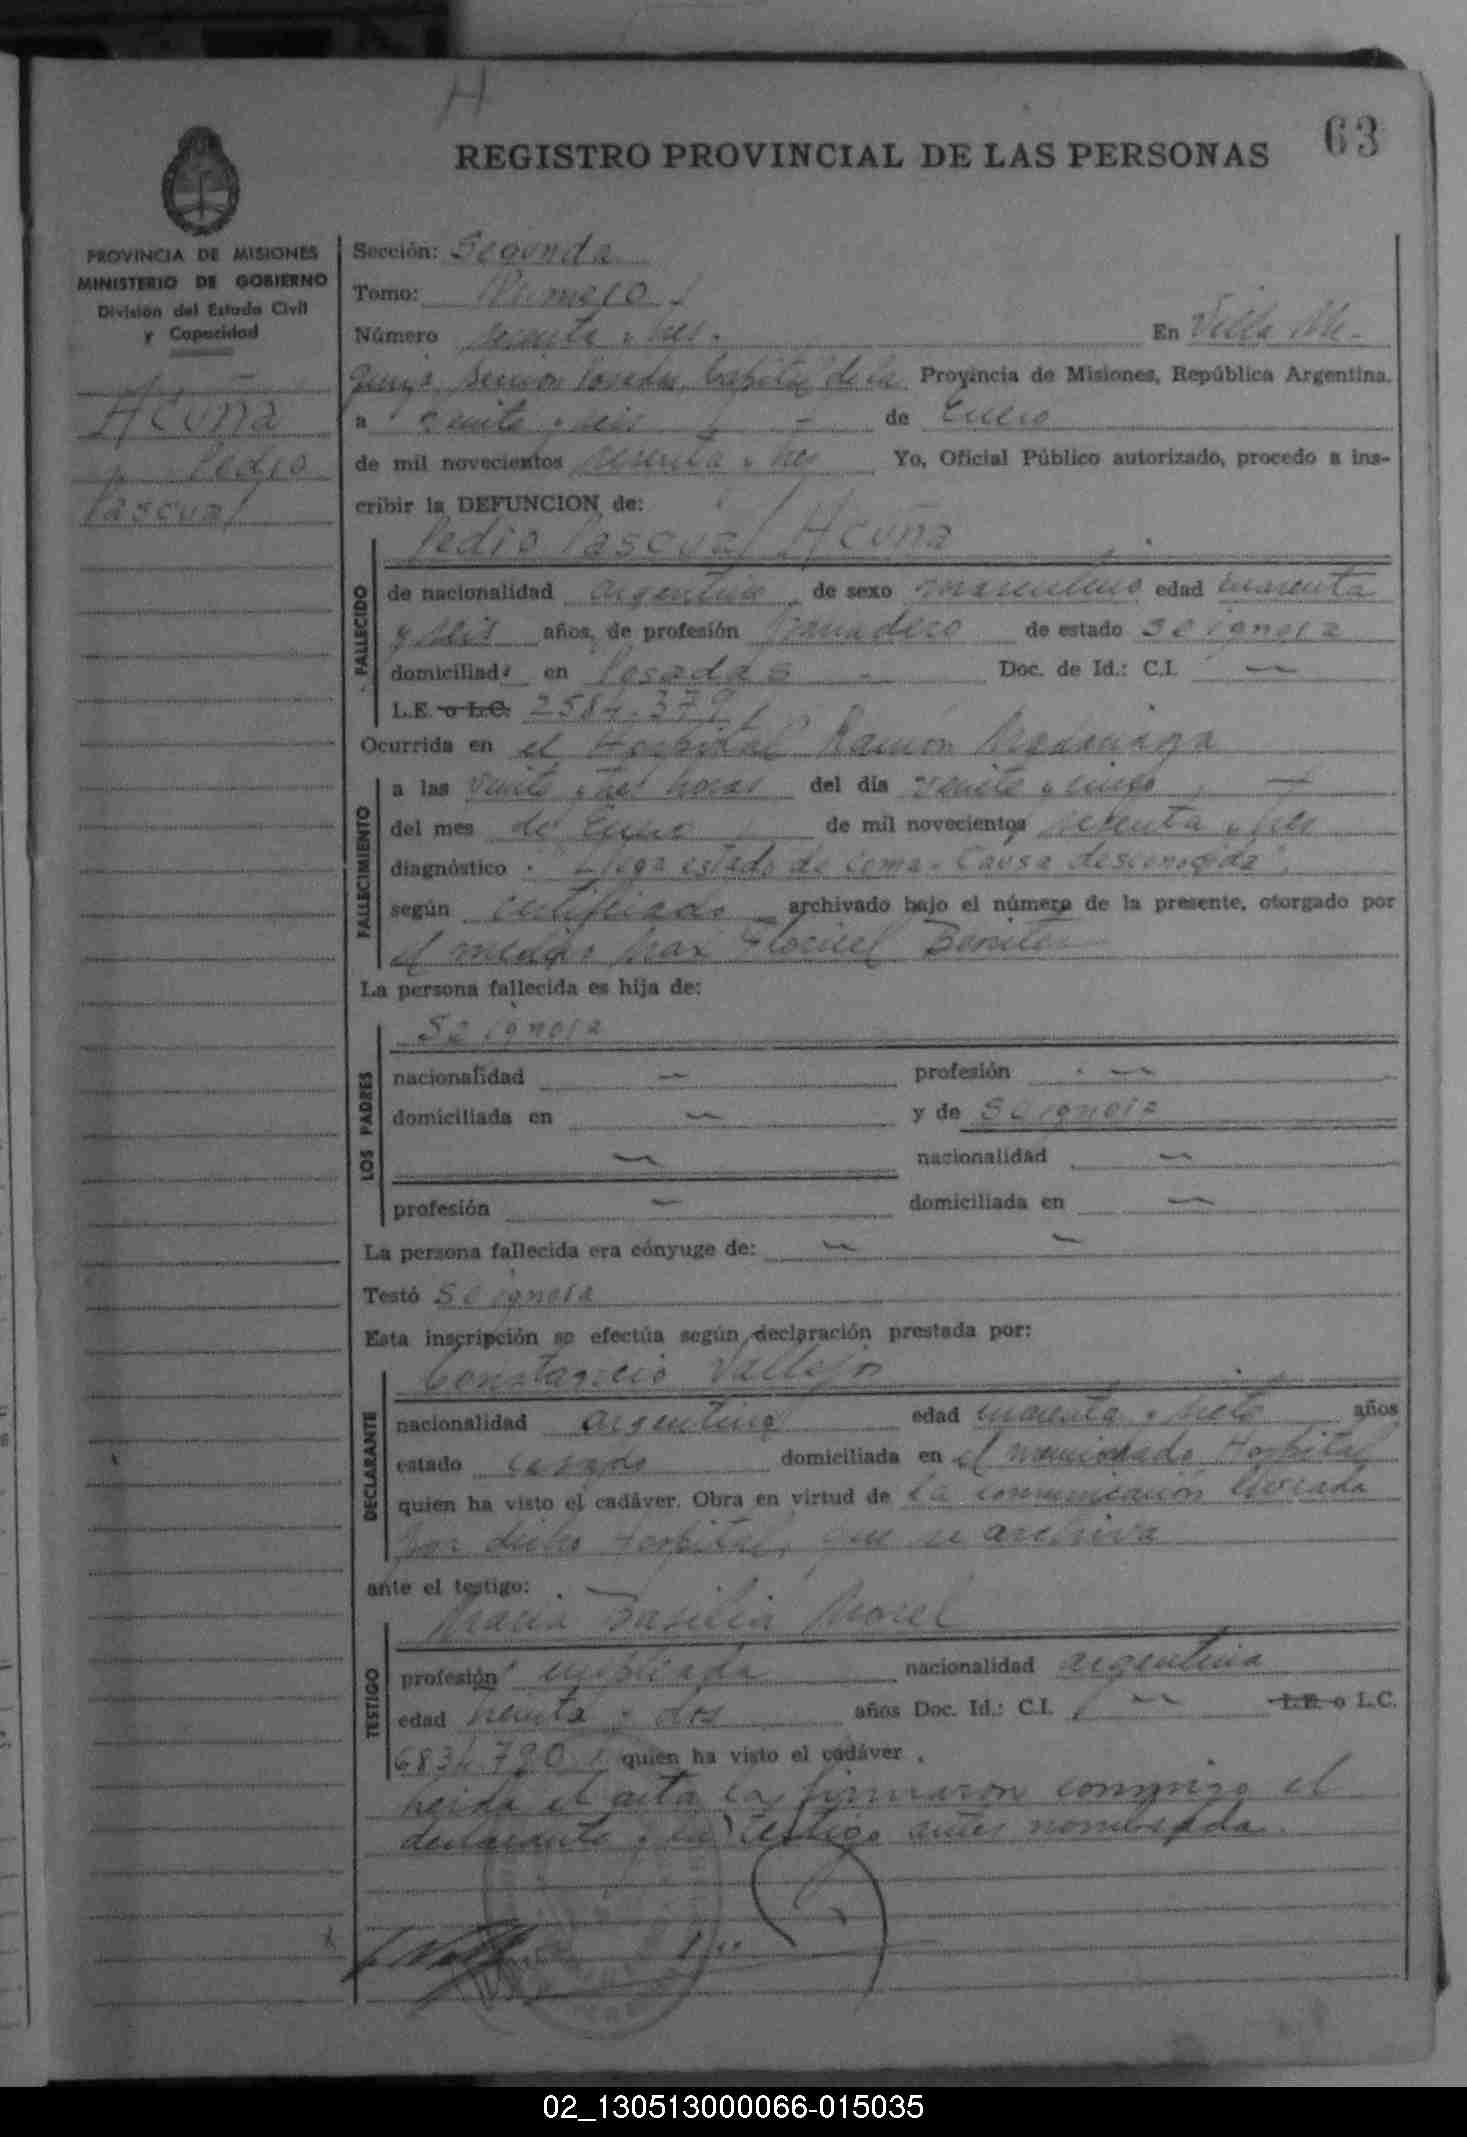 H
63
REGISTRO PROVINCIAL DE LAS PERSONAS
PROVINCIA DE MISIONES
MINISTERIO DE GOBIERNO
División del Estado Civil
y Capacidad
Acuña
Pedro
Pascual
Sección: Segunda
Tomo: Primero
Número sesenta y tres. En Villa Ur-
quiza Sección Posadas, Capital de la Provincia de Misiones, República Argentina,
a veinte y seis de Enero
de mil novecientos sesenta y tres Yo, Oficial Público autorizado, procedo a ins-
cribir la DEFUNCION de:
Pedro Pascual Acuña
FALLECIDO
de nacionalidad argentina, de sexo masculino edad cuarenta
y seis años, de profesión de estado se ignora
domiciliado en Posadas Doc. de Id.: C.I. —
L.E. o L.C. 2584.379
Ocurrida en el Hospital Ramón Madariaga
FALLECIMIENTO
a las veinte y tres horas del día veinte y cinco
del mes de Enero de mil novecientos sesenta y tres
diagnóstico "Llega estado de coma. Causa desconocida",
según certificado archivado bajo el número de la presente, otorgado por
el médico Max Benitez
La persona fallecida es hija de:
LOS PADRES
Se ignora
nacionalidad — profesión —
domiciliada en — y de Se ignora
— nacionalidad —
profesión — domiciliada en —
La persona fallecida era cónyuge de: — —
Testó Se ignora
Esta inscripción se efectúa según declaración prestada por:
DECLARANTE
Constancio Vallejo
nacionalidad argentina edad cuarenta y siete años
estado casado domiciliada en el mencionado Hospital
quien ha visto el cadáver. Obra en virtud de la comunicación elevada
por dicho Hospital, que se archiva
ante el testigo:
TESTIGO
María Basilia Morel
profesión empleada nacionalidad argentina
edad treinta y dos años Doc. Id.: C.I. — L.E. o L.C.
6834.790 quien ha visto el cadáver.
Leída el acta la firmaron conmigo el
declarante y la testigo antes nombrada.
02_130513000066-015035